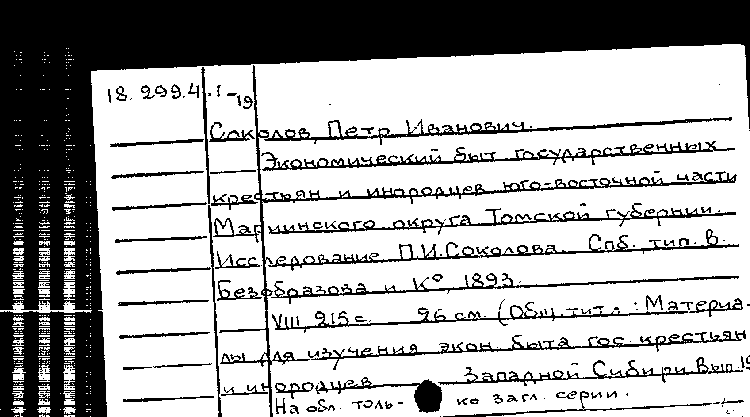 18.299.4.1-19
Соколов, Петр Иванович.
Экономический быт государственных
крестьян и инородцев юго-восточной части
Мариинского округа Томской губернии.
Исследование П.И.Соколова. Спб., тип. В.
Безобразова и К°, 1893.
VIII, 215 с. 26 см. (Общ. тит. л.: Материа-
лы для изучения экон. быта гос. крестьян
и инородцев Западной Сибири. Вып. 19
На обл. толь- ко загл. серии.